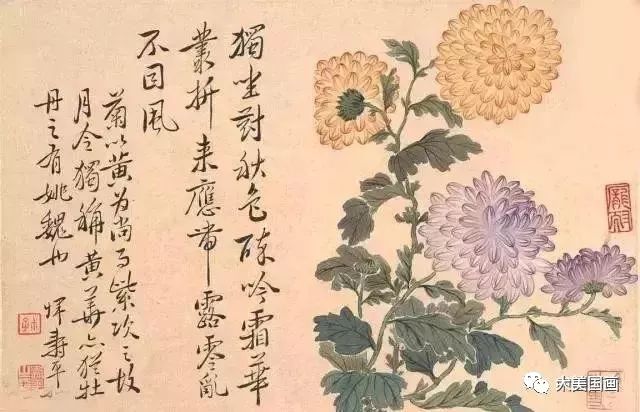 獨坐對秋色醉吟霜華
叢折来應帶露零亂
不因風
菊以黄为尚而紫次之故
月令獨稱黄華亦猶牡
丹之有姚魏也 惲壽平
大美国画